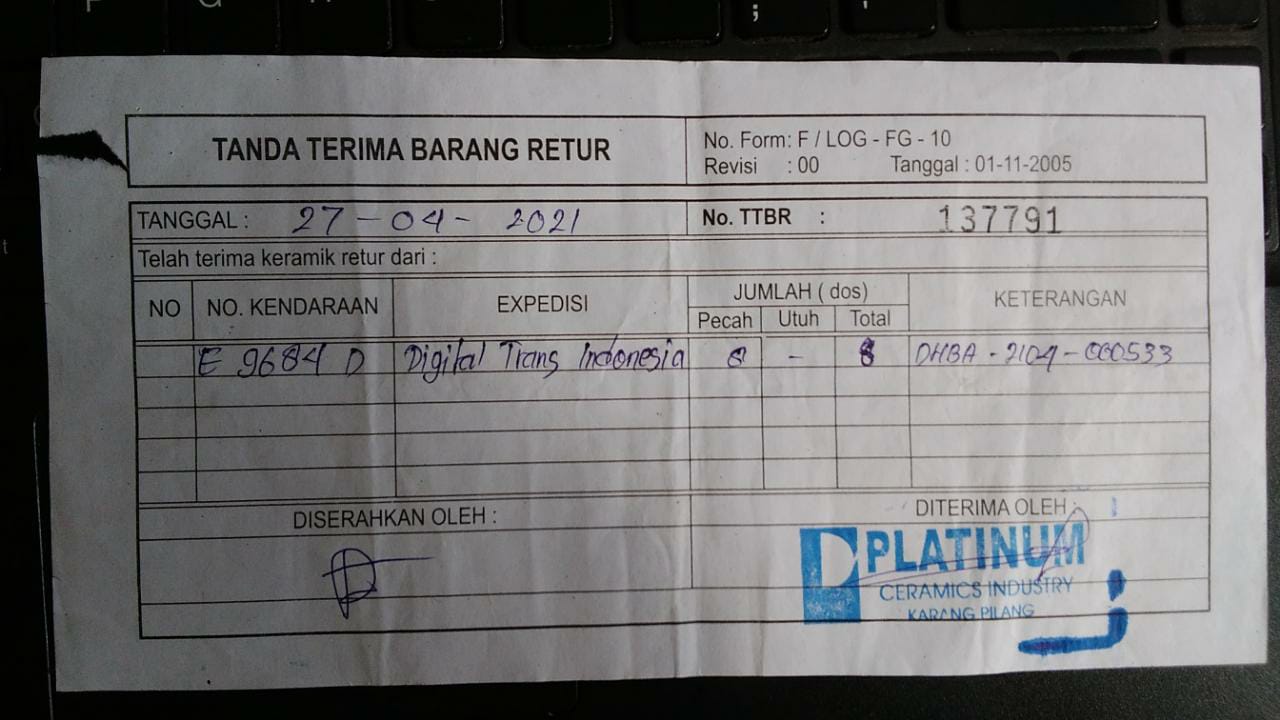 TANDA TERIMA BARANG RETUR
No. Form: F / LOG - FG - 10
Revisi : 00 Tanggal : 01-11-2005
TANGGAL : 27 - 04 - 2021 No. TTBR : 137791
Telah terima keramik retur dari :
NO NO. KENDARAAN EXPEDISI JUMLAH ( dos) KETERANGAN
Pecah Utuh Total
E 9684 D Digital Trans Indonesia 8 - 8 DHBA - 2104 - 000533
DISERAHKAN OLEH : DITERIMA OLEH :
PLATINUM
CERAMICS INDUSTRY
KARANG PILANG